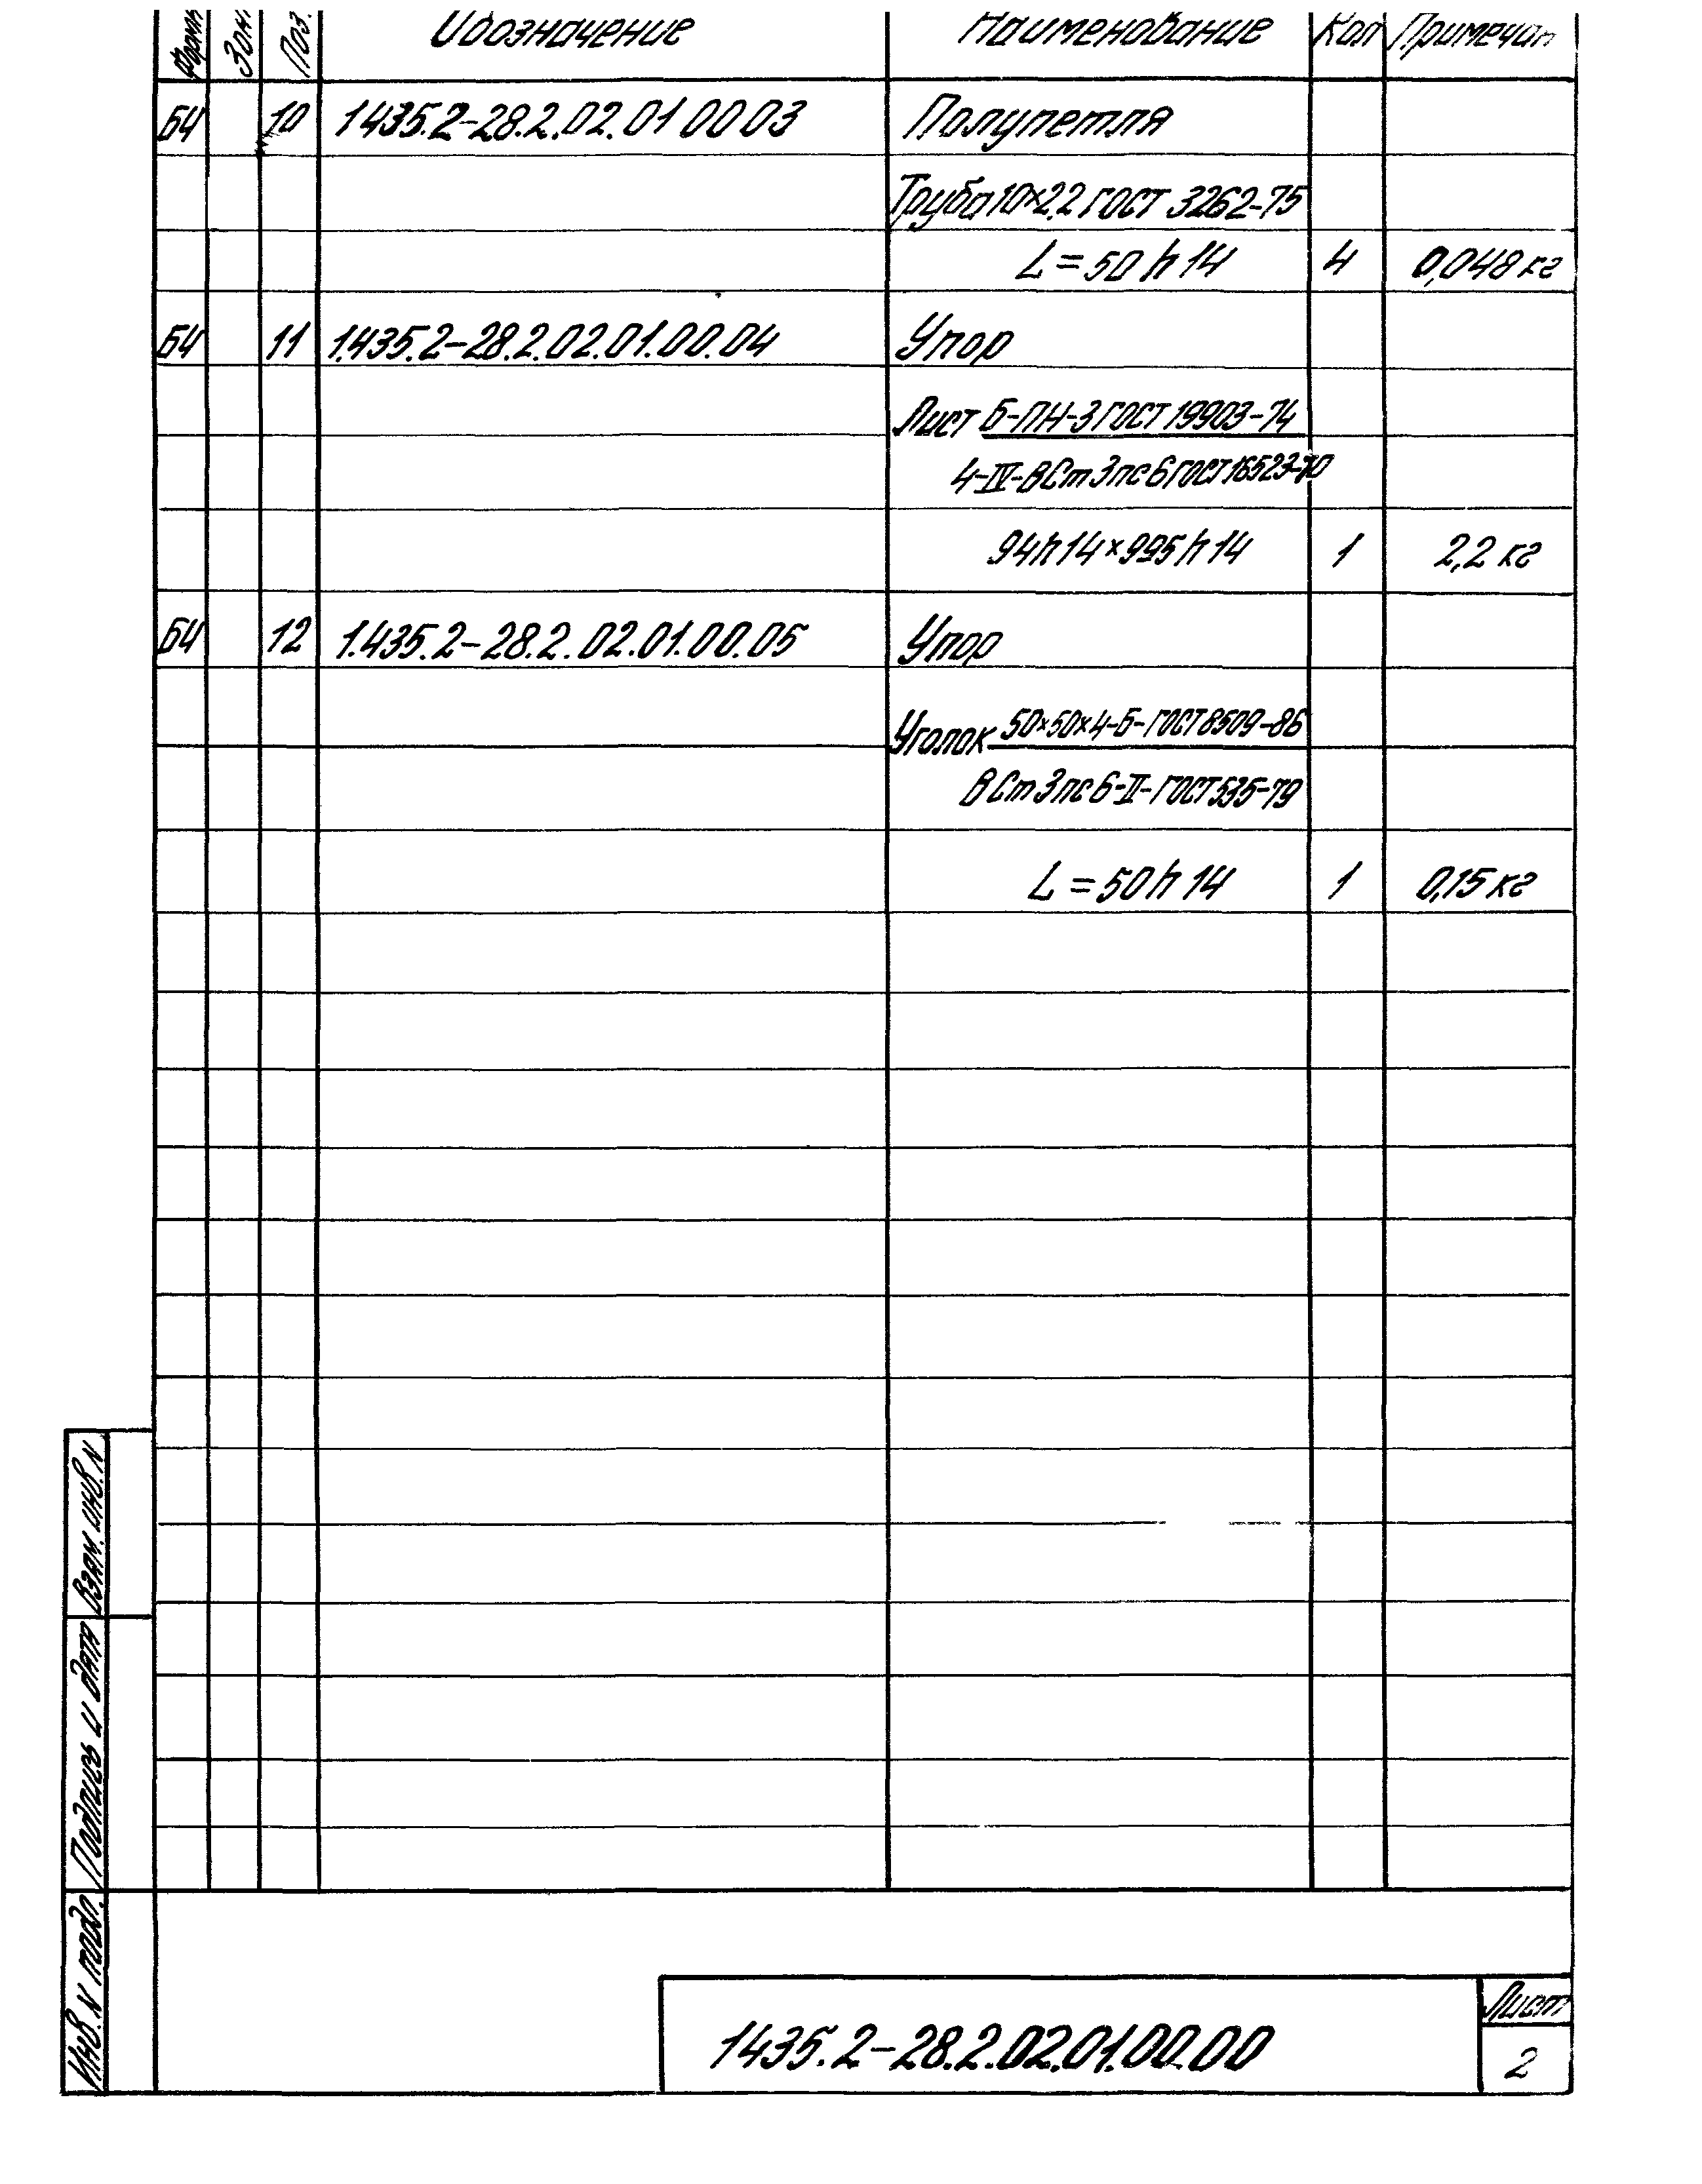 Форм Зон Поз. Обозначение Наименование Кол Примечан
БЧ 10 1435.2-28.2.02.01 00 03 Полупетля
Труба 10×2,2 ГОСТ 3262-75
L=50 h 14 4 0,048 кг
БЧ 11 1.435.2-28.2.02.01.00.04 Упор
Лист Б-ПН-3 ГОСТ 19903-74
4-IV-ВСт 3пс 6 ГОСТ 16523-70
94h14×995h14 1 2,2 кг
БЧ 12 1.435.2-28.2.02.01.00.05 Упор
Уголок 50×50×4-Б-ГОСТ 8509-86
ВСт 3пс 6-II-ГОСТ 535-79
L=50 h 14 1 0,15 кг
Взам. инв. N
Подпись и дата
Инв. N подл.
1435.2-28.2.02.01.00.00
Лист
2